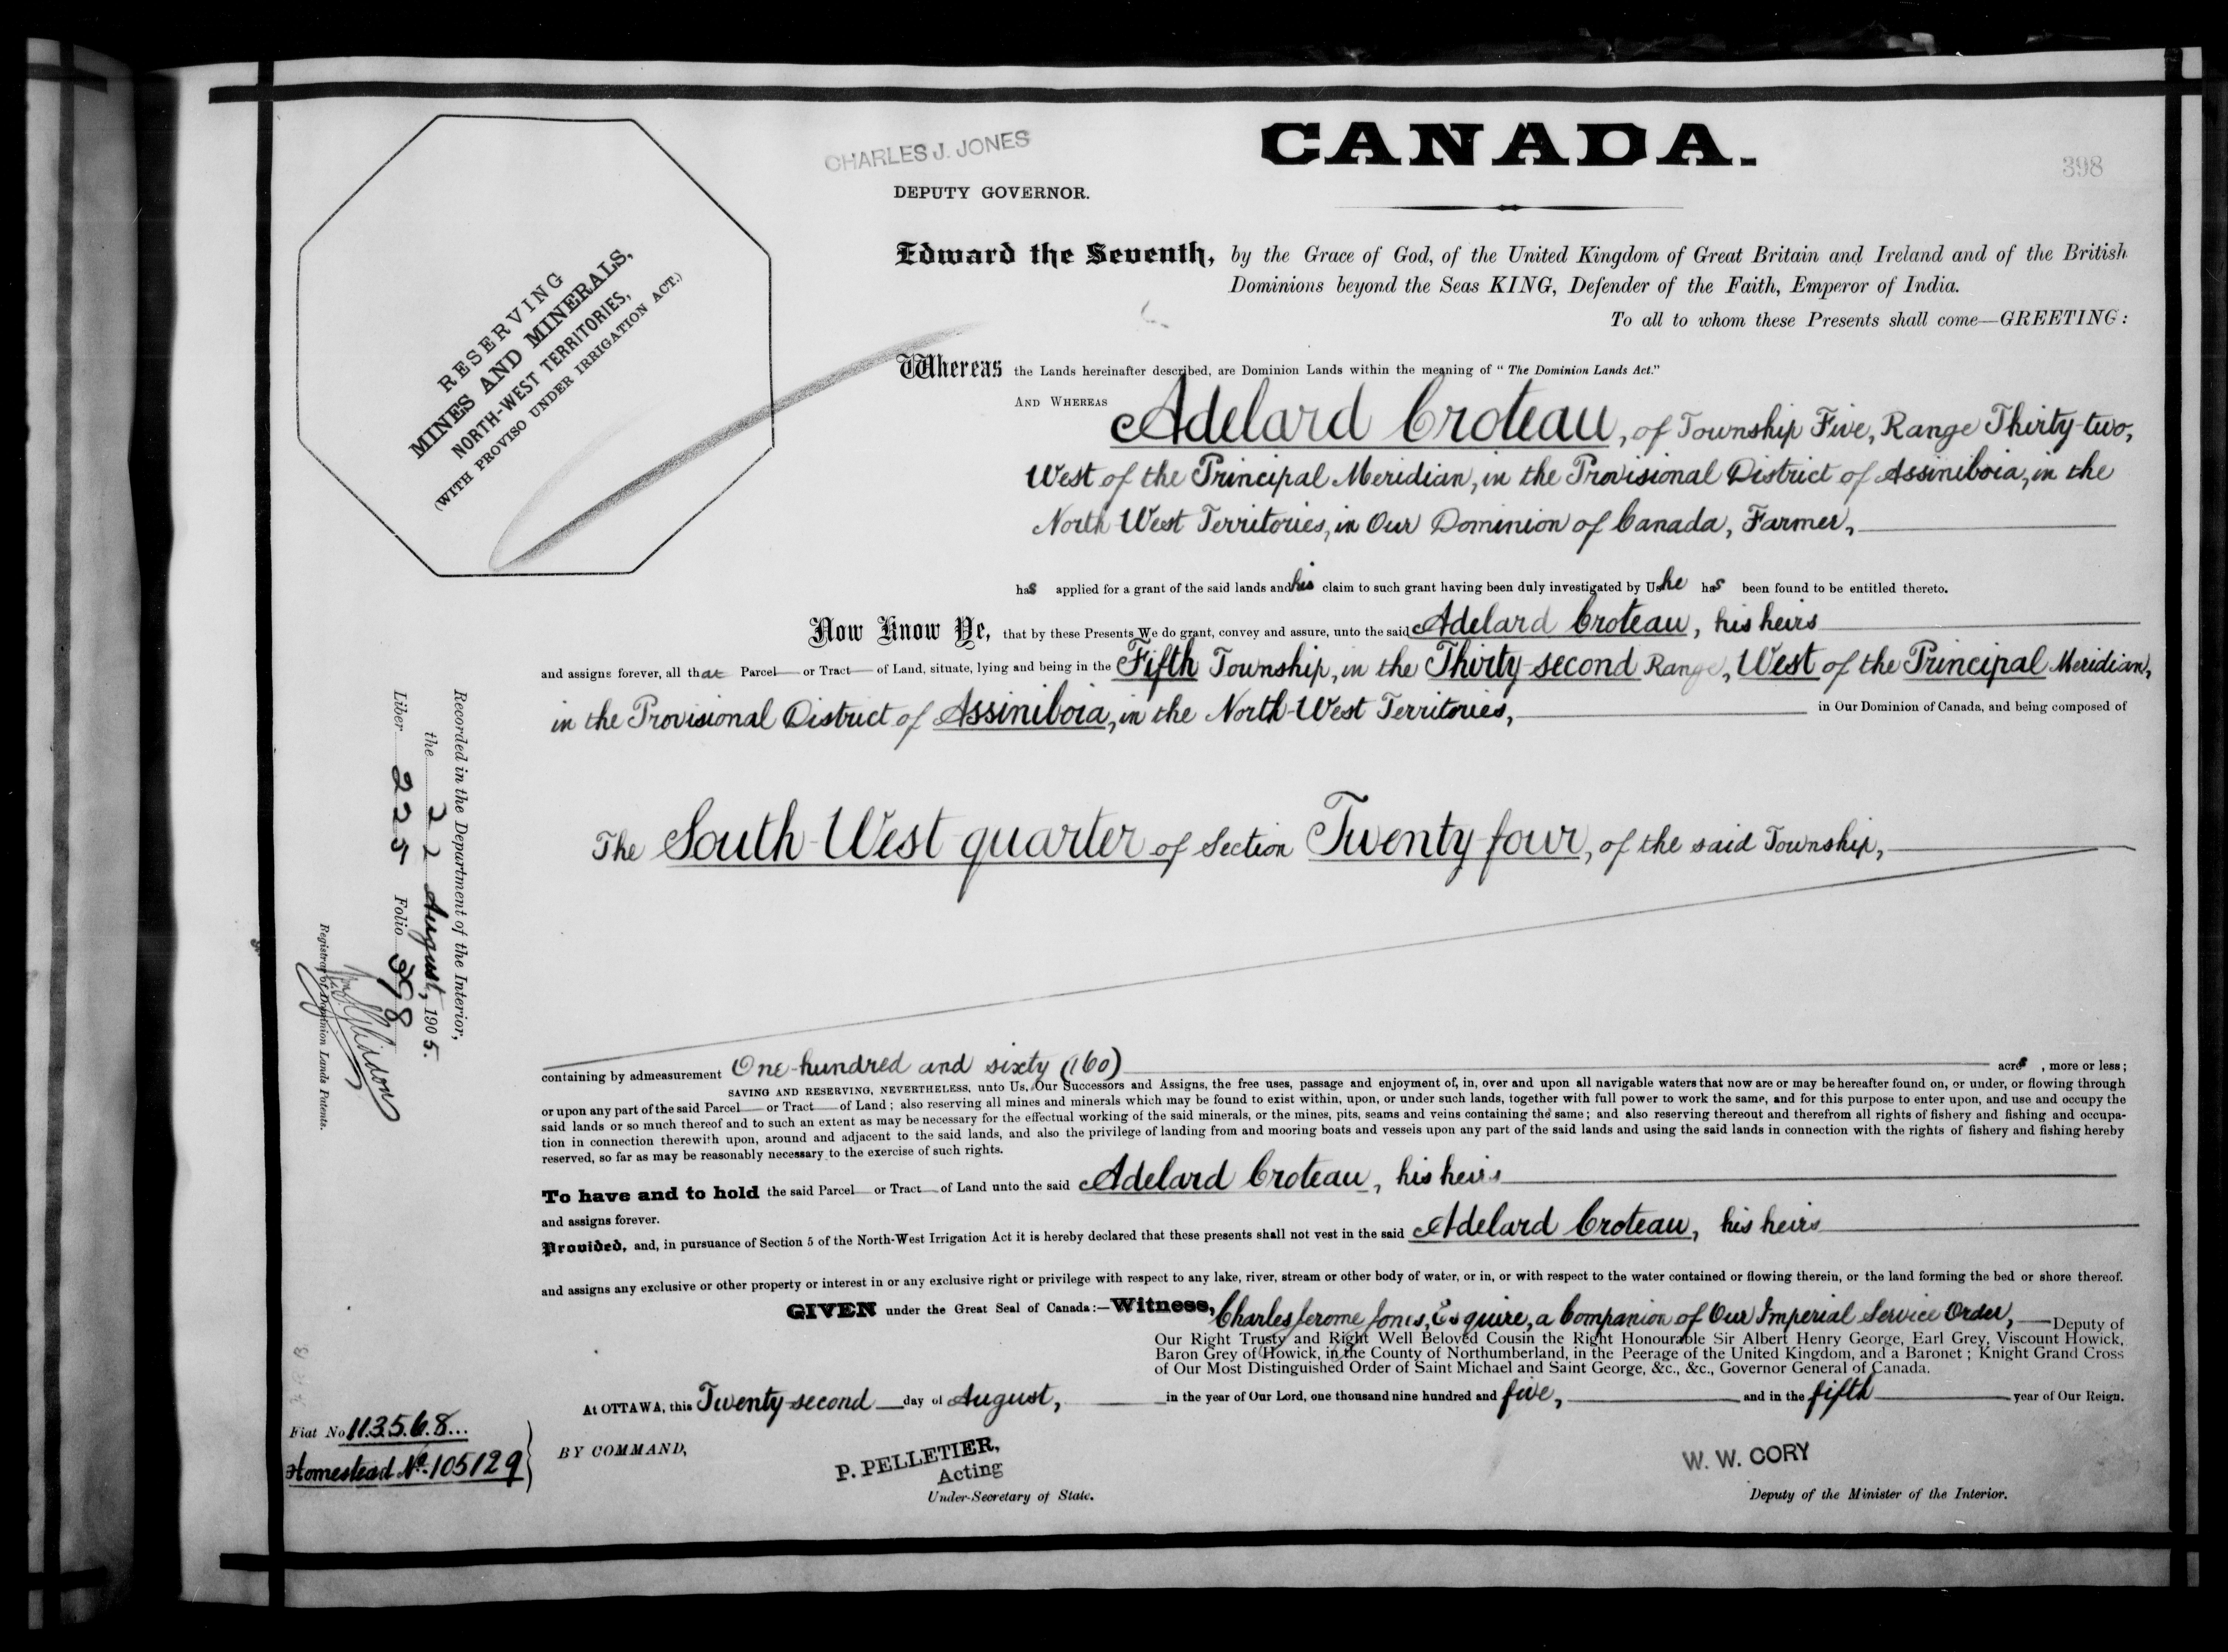 CHARLES J. JONES
DEPUTY GOVERNOR.
CANADA.
398
RESERVING
MINES AND MINERALS,
NORTH-WEST TERRITORIES,
(WITH PROVISO UNDER IRRIGATION ACT.)
Edward the Seventh, by the Grace of God, of the United Kingdom of Great Britain and Ireland and of the British
Dominions beyond the Seas KING, Defender of the Faith, Emperor of India.
To all to whom these Presents shall come—GREETING:
Whereas the Lands hereinafter described, are Dominion Lands within the meaning of "The Dominion Lands Act."
AND WHEREAS Adelard Croteau, of Township Five, Range Thirty-two,
West of the Principal Meridian, in the Provisional District of Assiniboia, in the
North West Territories, in Our Dominion of Canada, Farmer,
has applied for a grant of the said lands and his claim to such grant having been duly investigated by Us he has been found to be entitled thereto.
Now Know Ye, that by these Presents We do grant, convey and assure, unto the said Adelard Croteau, his heirs
and assigns forever, all that Parcel or Tract of Land, situate, lying and being in the Fifth Township, in the Thirty-second Range, West of the Principal Meridian,
in the Provisional District of Assiniboia, in the North-West Territories, in Our Dominion of Canada, and being composed of
The South-West quarter of Section Twenty four, of the said Township,
containing by admeasurement One hundred and sixty (160) acres, more or less;
SAVING AND RESERVING, NEVERTHELESS, unto Us, Our Successors and Assigns, the free uses, passage and enjoyment of, in, over and upon all navigable waters that now are or may be hereafter found on, or under, or flowing through
or upon any part of the said Parcel or Tract of Land; also reserving all mines and minerals which may be found to exist within, upon, or under such lands, together with full power to work the same, and for this purpose to enter upon, and use and occupy the
said lands or so much thereof and to such an extent as may be necessary for the effectual working of the said minerals, or the mines, pits, seams and veins containing the same; and also reserving thereout and therefrom all rights of fishery and fishing and occupa-
tion in connection therewith upon, around and adjacent to the said lands, and also the privilege of landing from and mooring boats and vessels upon any part of the said lands and using the said lands in connection with the rights of fishery and fishing hereby
reserved, so far as may be reasonably necessary to the exercise of such rights.
To have and to hold the said Parcel or Tract of Land unto the said Adelard Croteau, his heirs
and assigns forever.
Provided, and, in pursuance of Section 5 of the North-West Irrigation Act it is hereby declared that these presents shall not vest in the said Adelard Croteau, his heirs
and assigns any exclusive or other property or interest in or any exclusive right or privilege with respect to any lake, river, stream or other body of water, or in, or with respect to the water contained or flowing therein, or the land forming the bed or shore thereof.
GIVEN under the Great Seal of Canada:—Witness, Charles Jerome Jones, Esquire, a Companion of Our Imperial Service Order, Deputy of
Our Right Trusty and Right Well Beloved Cousin the Right Honourable Sir Albert Henry George, Earl Grey, Viscount Howick,
Baron Grey of Howick, in the County of Northumberland, in the Peerage of the United Kingdom, and a Baronet; Knight Grand Cross
of Our Most Distinguished Order of Saint Michael and Saint George, &c., &c., Governor General of Canada.
At OTTAWA, this Twenty second day of August, in the year of Our Lord, one thousand nine hundred and five, and in the fifth year of Our Reign.
BY COMMAND,
P. PELLETIER,
Acting
Under-Secretary of State.
W. W. CORY
Deputy of the Minister of the Interior.
Recorded in the Department of the Interior,
the 22 August, 1905.
Liber 225 Folio 398
Registrar of Dominion Lands Patents.
Fiat No 113568
Homestead No. 105129